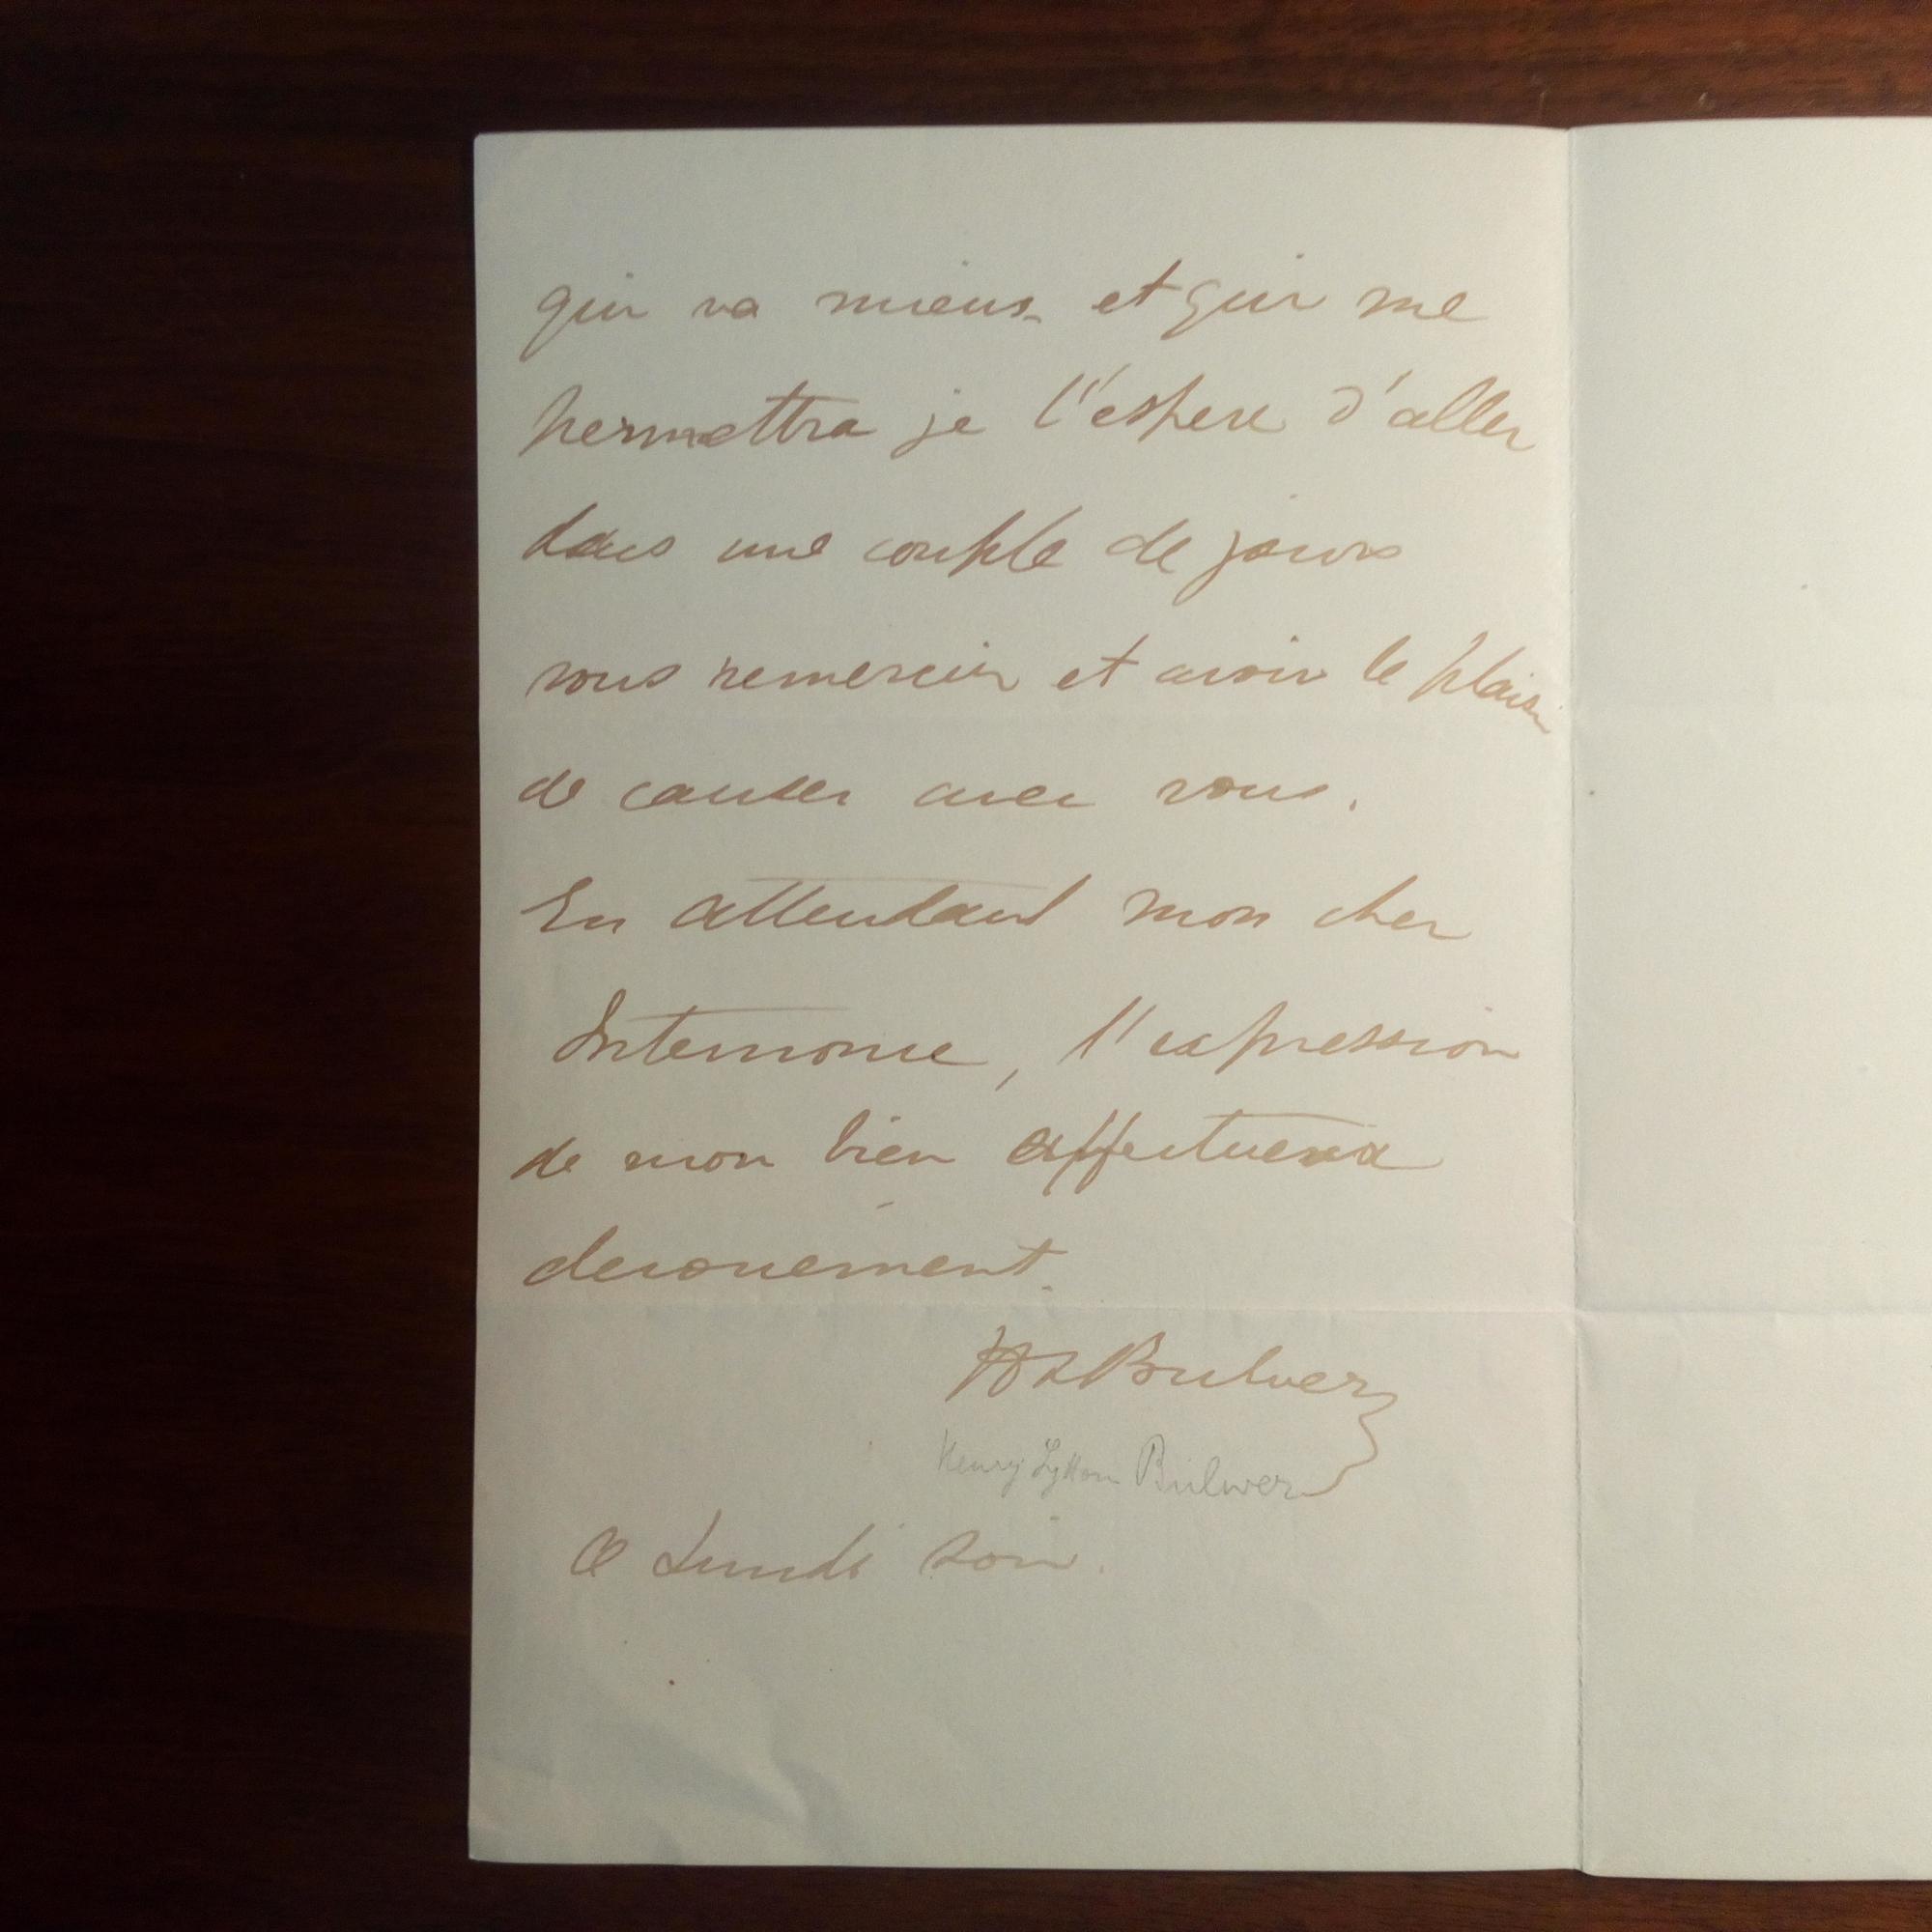 qui va mieux et qui me
permettra je l'espere d'aller
dans une couple de jours
vous remercier et avoir le plaisir
de causer avec vous.
En attendant mon cher
Internonce, l'expression
de mon bien affectueux
devouement.
HLBulwer
Henry Lytton Bulwer
Ce Lundi soir.